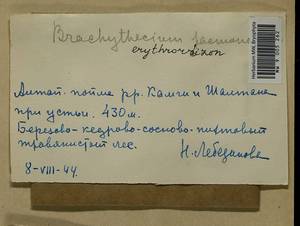 Brachythecium
erythrorrhizon
Алтай. пойма рр. Камги и Шалтана
при устьи. 430 м.
Березово-кедрово-сосново-пихтовый
травянистый лес.
Н. Лебединова
8-VIII-44.